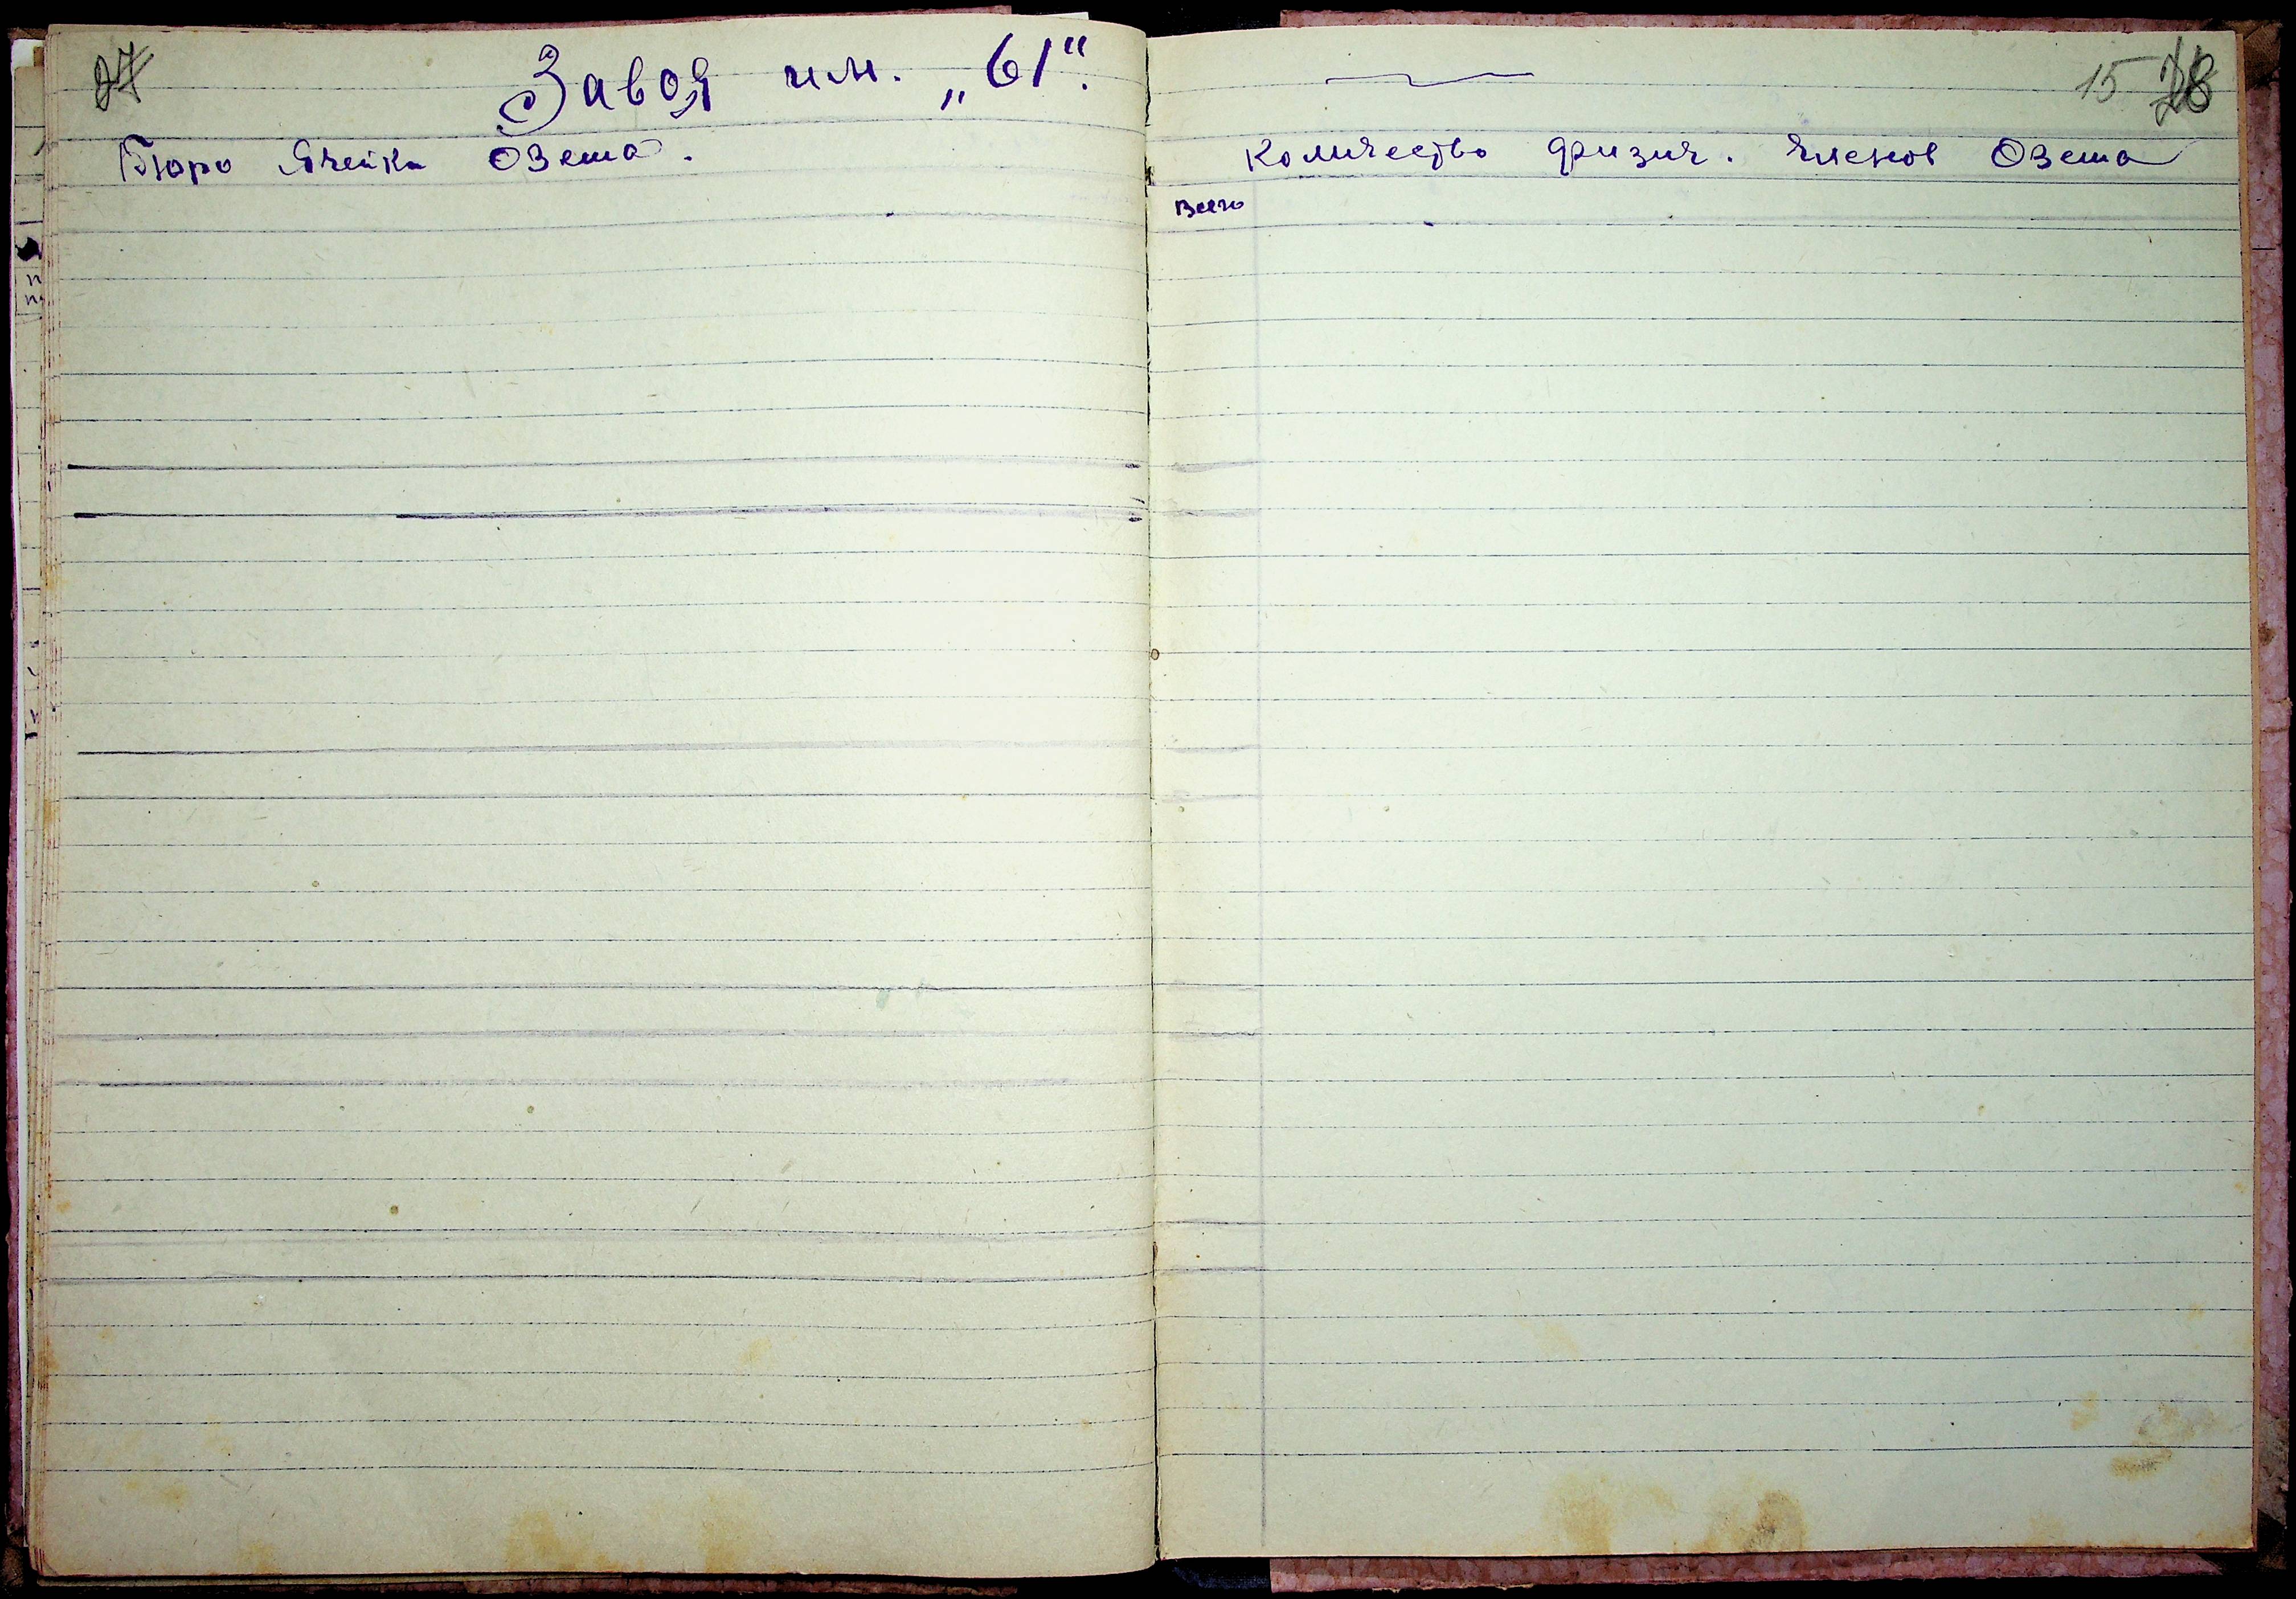 27
Завод им. „61“.
Бюро Ячейки Озета.
15 28
Количество физич. членов Озета
Всего